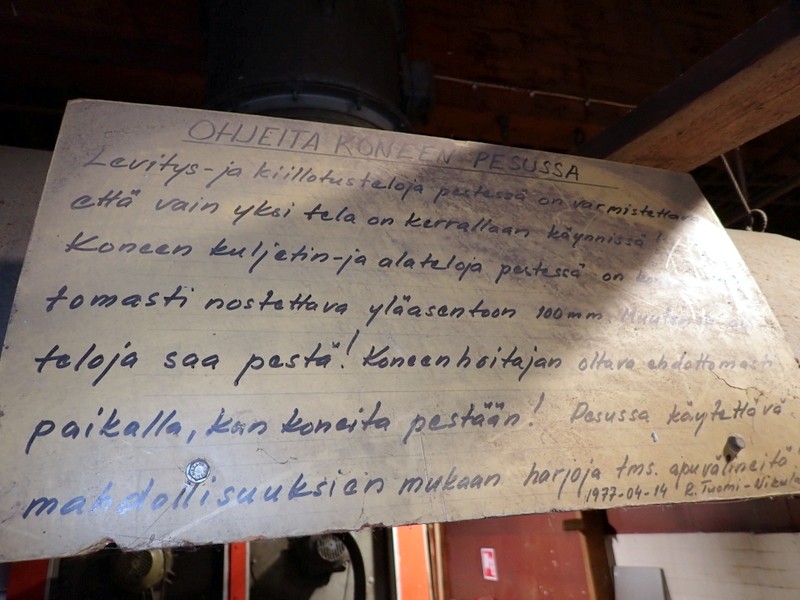 OHJEITA KONEEN PESUSSA
Levitys-ja kiillotusteloja pestessä on varmistettava
että vain yksi tela on kerrallaan käynnissä!
Koneen kuljetin-ja alateloja pestessä on
tomasti nostettava yläasentoon 100mm
teloja saa pestä! Koneenhoitajan oltava ehdottomasti
paikalla, kun koneita pestään! Pesussa käytettävä
mahdollisuuksien mukaan harjoja tms. apuvälineitä
1977-04-14 R. Tuomi-Nikula